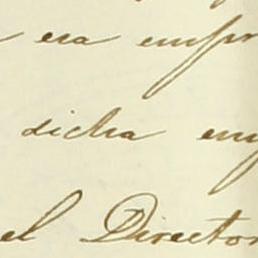 era empr
dicha em
el Director